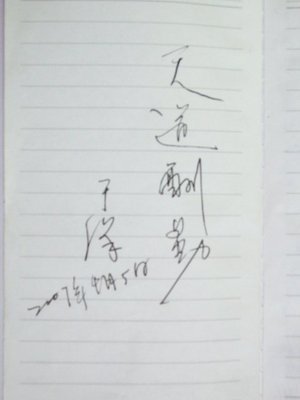 天道酬勤
于洋
2007年4月5日